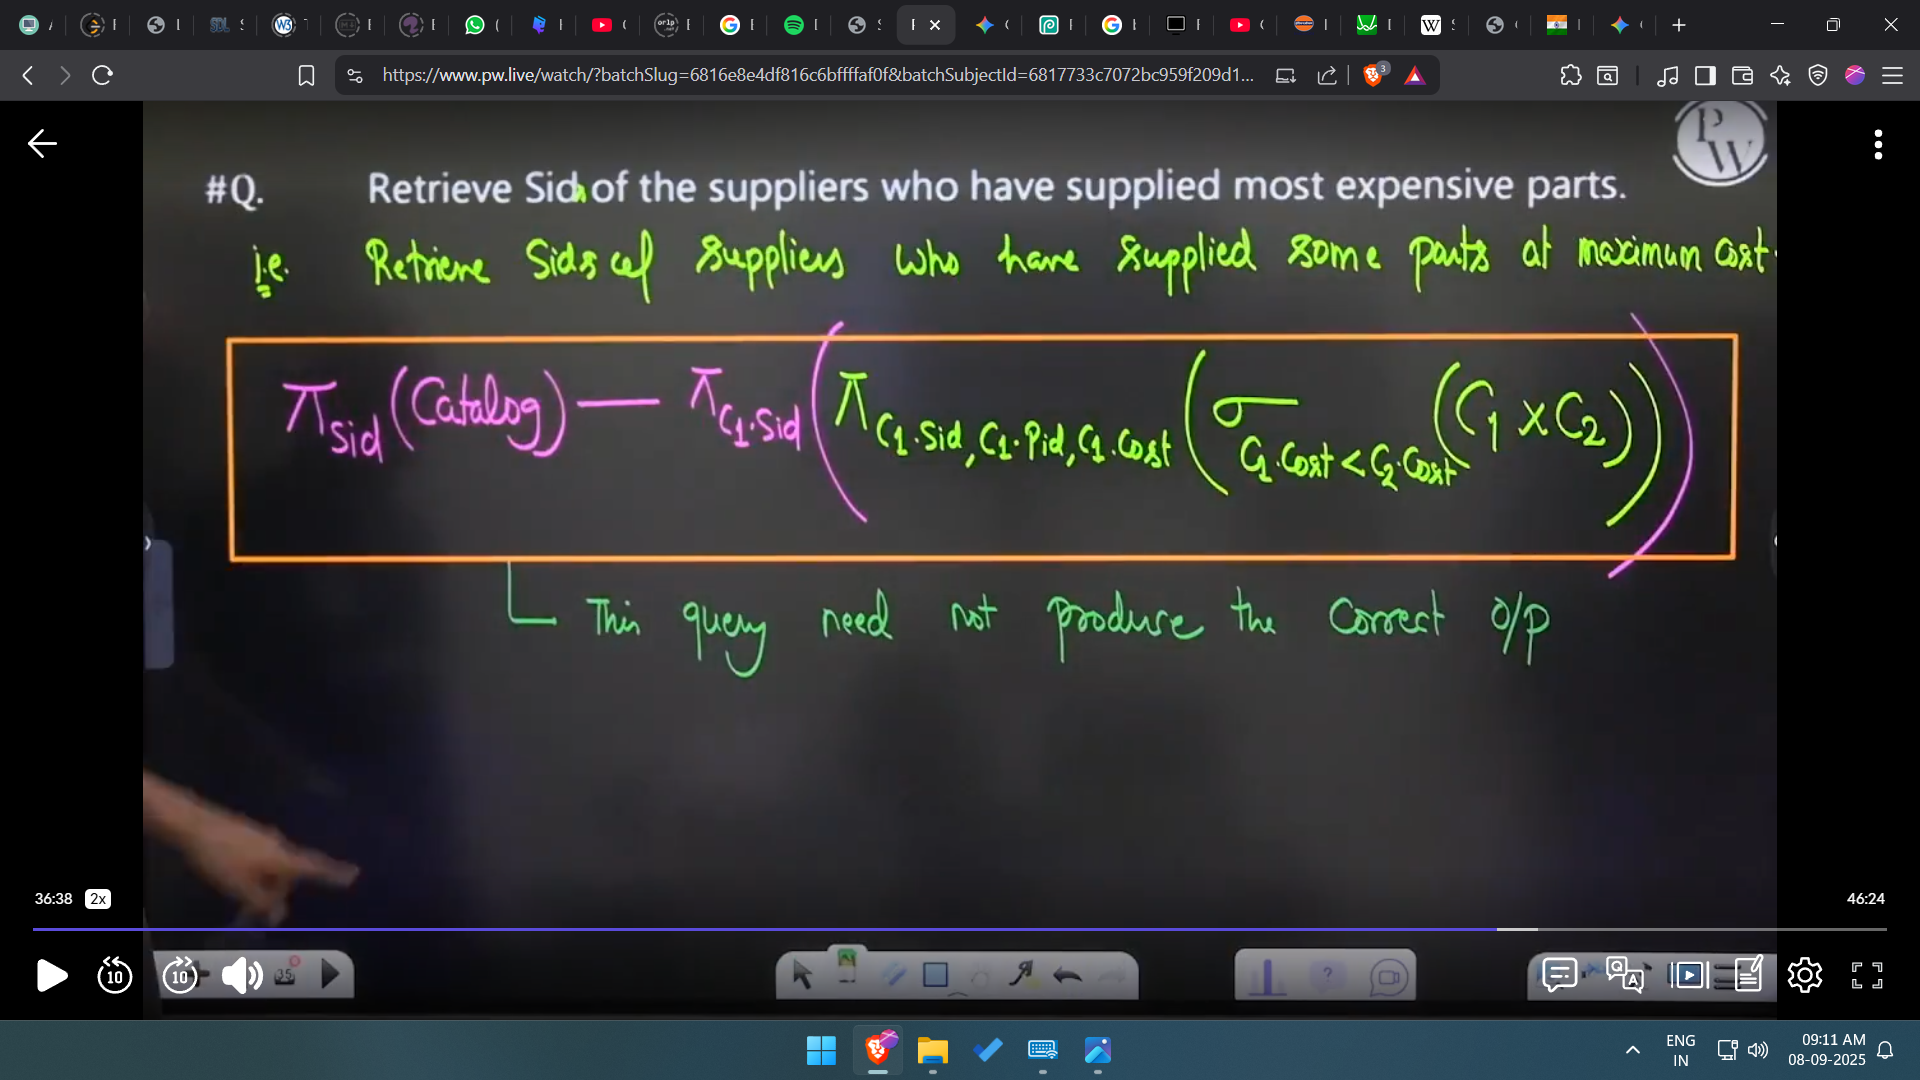 https://www.pw.live/watch/?batchSlug=6816e8e4df816c6bffffaf0f&batchSubjectId=6817733c7072bc959f209d1...
3
PW
#Q. Retrieve Sids of the suppliers who have supplied most expensive parts.
i.e. Retrieve Sids of suppliers who have supplied some parts at maximum cost.
π Sid (Catalog) — π C1.Sid (π C1.Sid, C1.Pid, C1.Cost (σ C1.Cost < C2.Cost (C1 x C2)))
This query need not produce the correct o/p
36:38 2x 46:24
10 10 35
ENG
IN
09:11 AM
08-09-2025